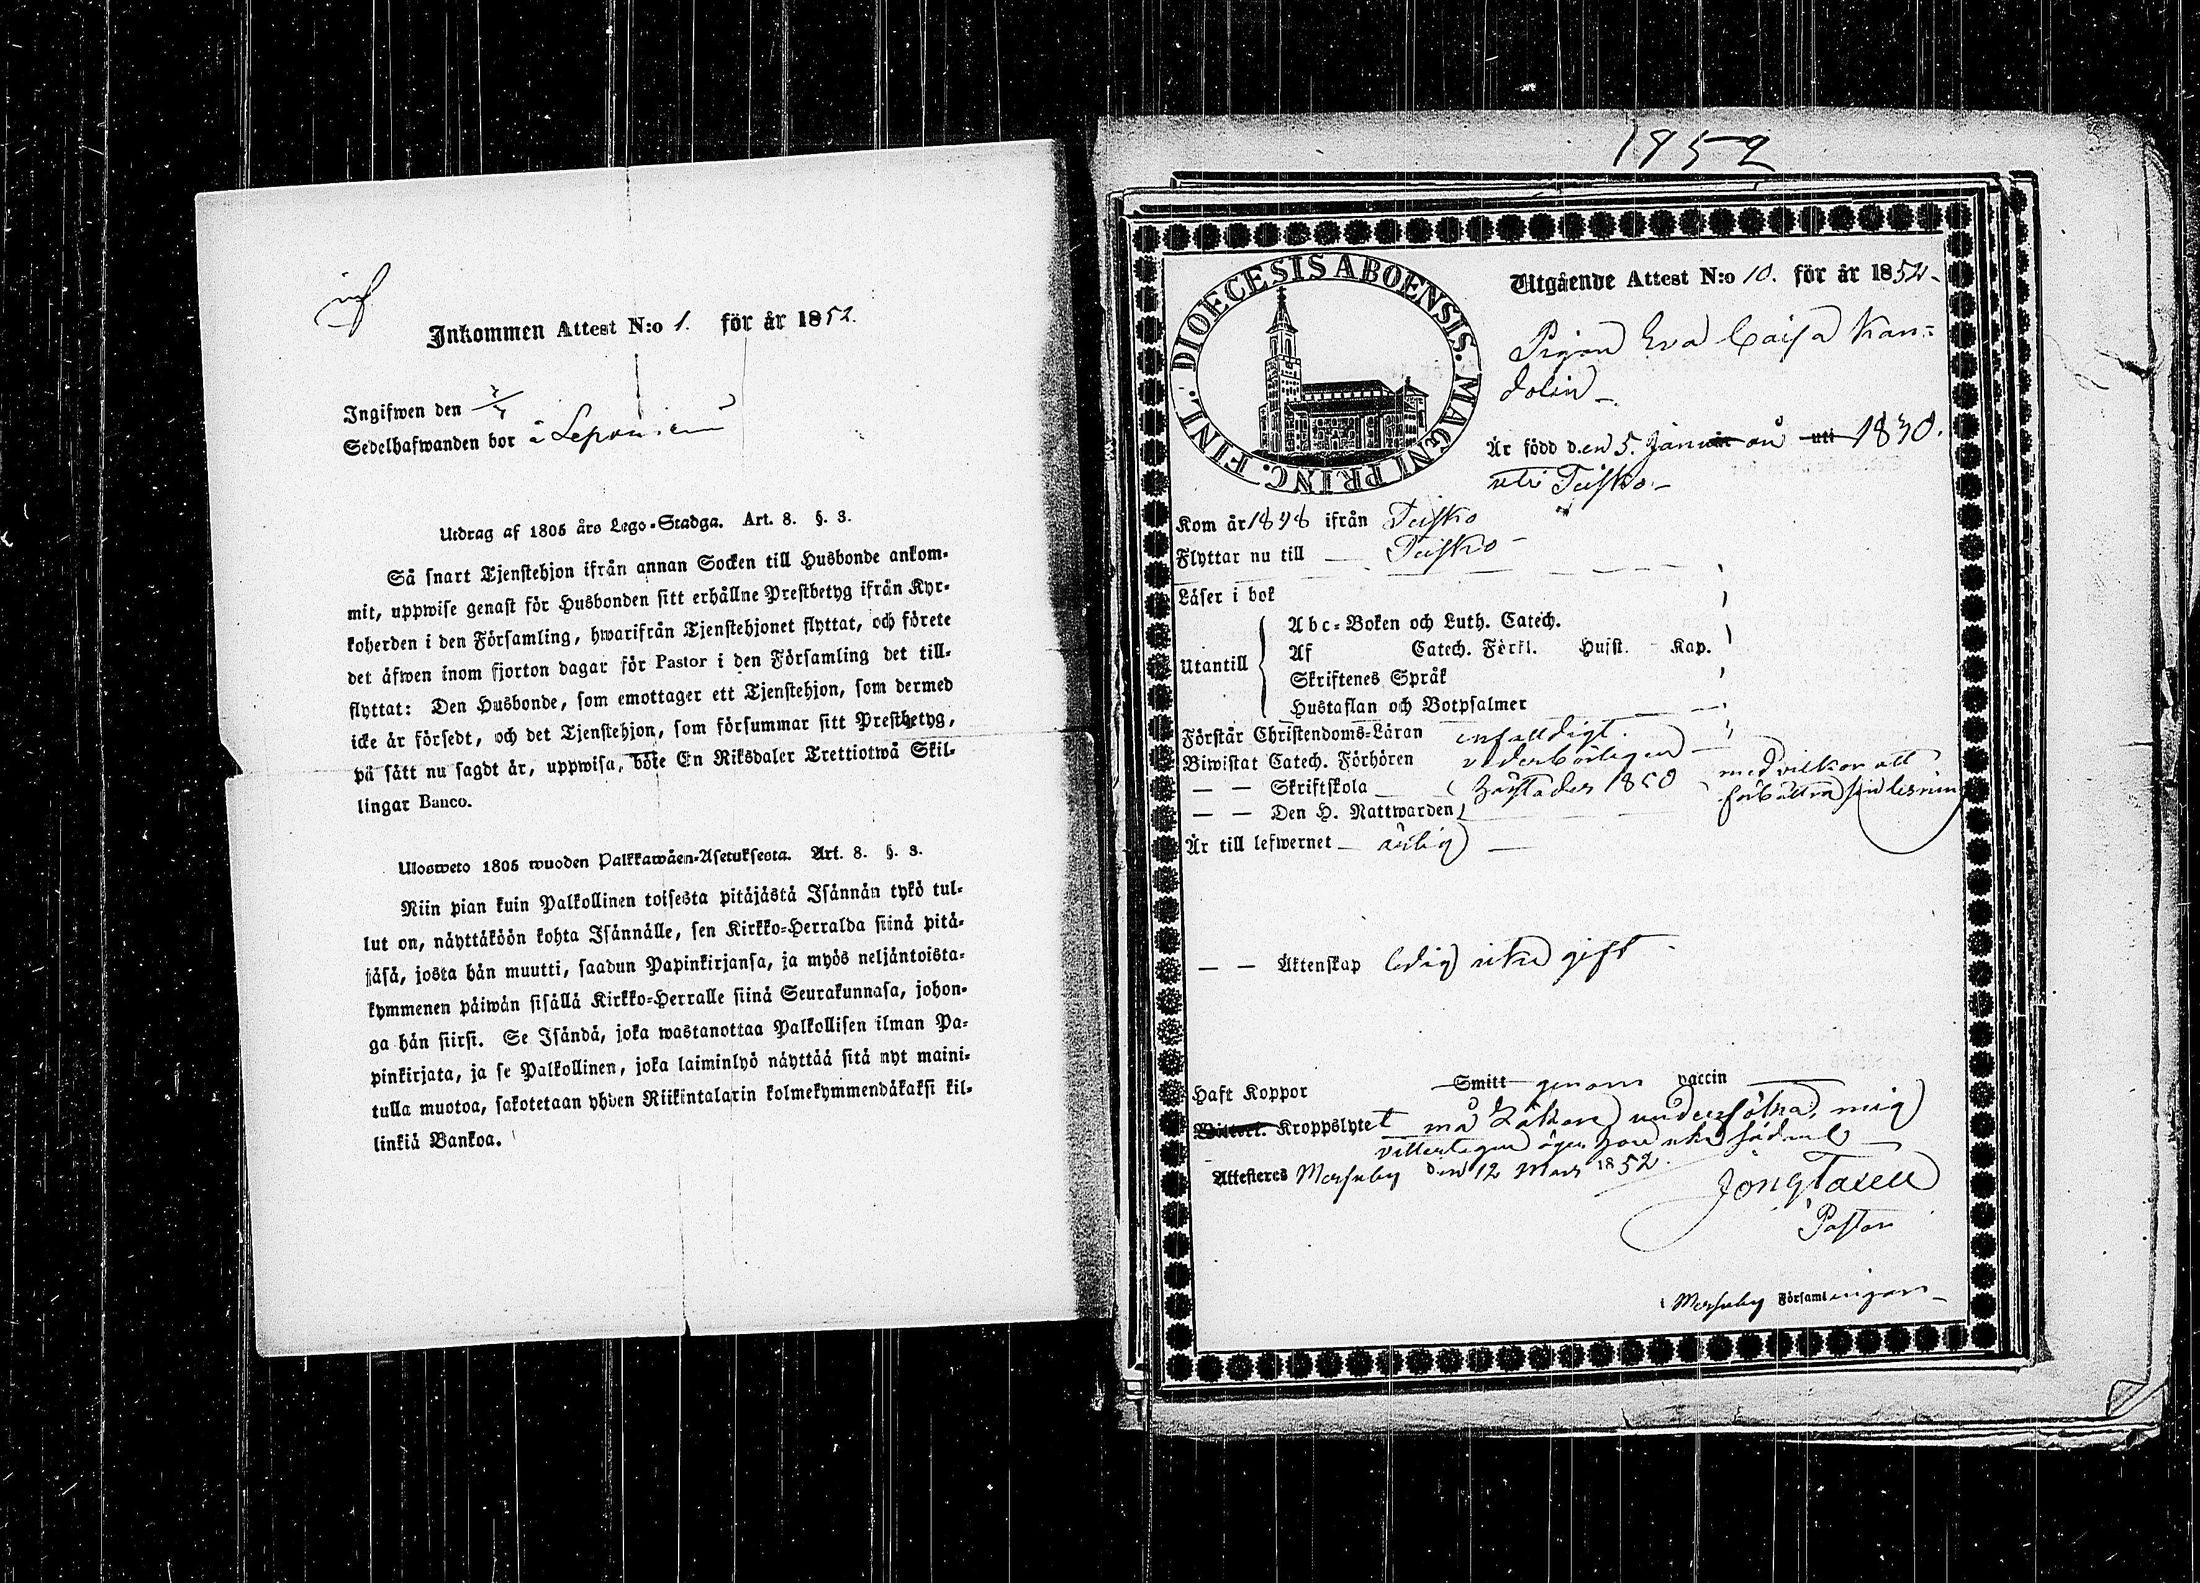 Inkommen Attest N:o 1. för år 1852.
Ingifwen den
Sedelhafwanden bor å
Utdrag af 1805 års Lego-Stadga. Art. 8. §. 3.
Så snart Tjenstehjon ifrån annan Socken till Husbonde ankom-
mit, uppwise genast för Husbonden sitt erhållne Prestbetyg ifrån Kyr-
koherden i den Församling, hwarifrån Tjenstehjonet flyttat, och förete
det äfwen inom fjorton dagar för Pastor i den Församling det till-
flyttat: Den Husbonde, som emottager ett Tjenstehjon, som dermed
icke är försedt, och det Tjenstehjon, som försummar sitt Prestbetyg,
på sätt nu sagdt är, uppwisa, böte En Riksdaler Trettiotwå Skil-
lingar Banco.
Ulosweto 1805 wuoden Palkkawäen-Asetuksesta. Art. 8. §. 3.
Niin pian kuin Palkollinen toisesta pitäjästä Isännän tykö tul-
lut on, näyttäköön kohta Isännälle, sen Kirkko-Herralda siinä pitä-
jäsä, josta hän muutti, saadun Papinkirjansa, ja myös neljäntoista-
kymmenen päiwän sisällä Kirkko-Herralle siinä Seurakunnasa, johon-
ga hän siirsi. Se Isändä, joka wastanottaa Palkollisen ilman Pa-
pinkirjata, ja se Palkollinen, joka laiminlyö näyttää sitä nyt maini-
tulla muotoa, sakotetaan yhden Riikintalarin kolmekymmendäkaksi kil-
linkiä Bankoa.
1852
DIOECESIS ABOENSIS. MAGNI PRINC. FINL.
Utgående Attest N:o 10. för år 1852
Pigan Eva Caisa Kan-
dolin
Är född den 5. Januari uti 1830.
uti Teisko
Kom år 1848 ifrån Teisko
Flyttar nu till Teisko
Läser i bok
Abc-Boken och Luth. Catech.
Utantill Af Catech. Förkl. Husst. Kap.
Skriftenes Språk
Hustaflan och Botpsalmer
Förstår Christendoms-Läran enfaldigt.
Biwistat Catech. Förhören vederbörligen
— — Skriftskola 1850 med vilkor att
— — Den H. Nattwarden förbättra sin läsning
Är till lefwernet ärlig
— — Äktenskap ledig icke gift
Haft Koppor Smitt genom vaccin
Kroppslytet må Läkare undersöka, mig
vitterligen icke sådant
Attesteres Messuby den 12 Mars 1852.
Pastor
i Messuby Församlingen